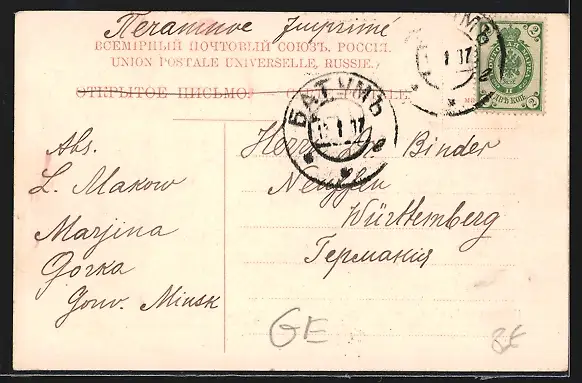 Печатное Imprimé
ВСЕМІРНЫЙ ПОЧТОВЫЙ СОЮЗЪ. РОССІЯ.
UNION POSTALE UNIVERSELLE, RUSSIE.
ОТКРЫТОЕ ПИСЬМО
БАТУМЪ
Abs.
L. Makow
Marjina
Gorka
Gouv. Minsk
Herrn Dr. Binder
Neuffen
Württemberg
Германія
GE